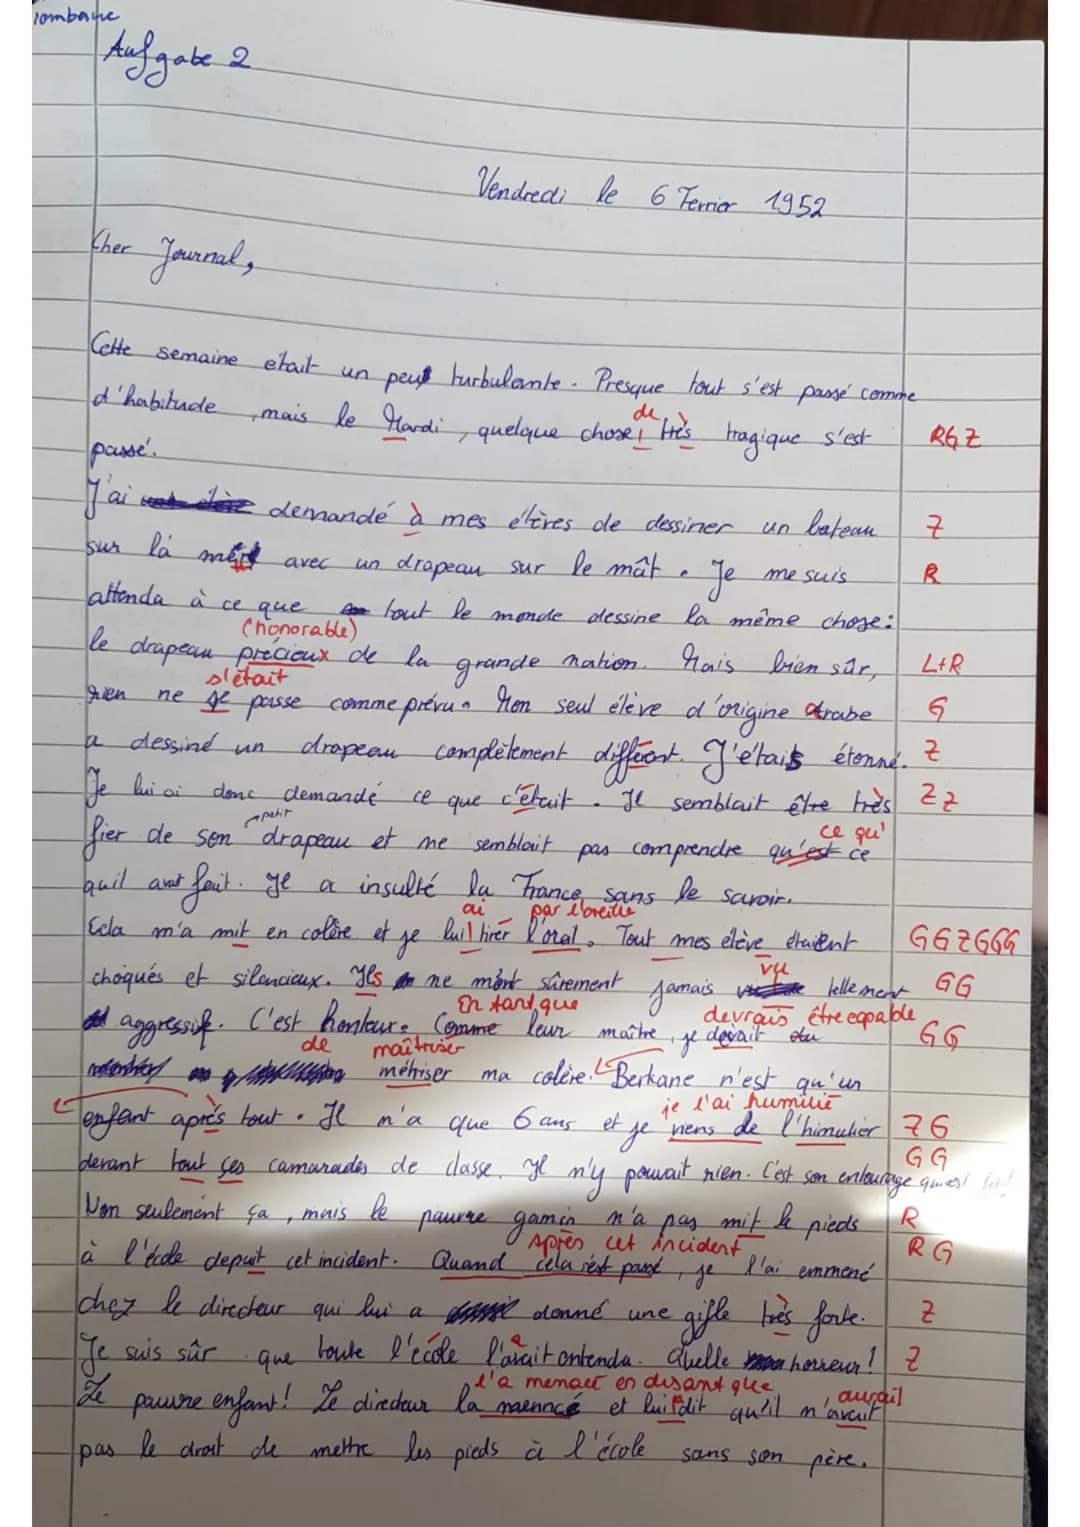 Aufgabe 2
Vendredi le 6 Fevrier 1952
Cher Journal,
Cette semaine etait un peu turbulante. Presque tout s'est passé comme
de
d'habitude, mais le Mardi, quelque chose très tragique s'est RGZ
passé.
J'ai demandé à mes élèves de dessiner un bateau Z
sur la mer avec un drapeau sur le mât. Je me suis R
attenda à ce que tout le monde dessine la même chose:
(honorable)
le drapeau précieux de la grande nation. Mais bien sûr, L+R
s'était
rien ne se passe comme prévu. Mon seul élève d'origine arabe G
a dessiné un drapeau complètement différent. J'étais étonné. Z
Je lui ai donc demandé ce que c'était. Il semblait être très ZZ
petit ce qu'
fier de son drapeau et ne semblait pas comprendre qu'est ce
quil avait fait. Il a insulté la France sans le savoir.
ai par l'oreille
Cela m'a mit en colère et je lui tirer l'oral. Tout mes élève étaient GGZGGG
vu
choqués et silencieux. Ils ne m'ont sûrement jamais tellement GG
En tant que devrais être capable
aggressif. C'est honteux. Comme leur maître, je devait du GG
de maîtriser
métriser ma colère. Berkane n'est qu'un
je l'ai humilié
enfant après tout. Il n'a que 6 ans et je viens de l'himulier ZG
GG
devant tout ses camarades de classe. Il n'y pouvait rien. C'est son entourage qui est
Non seulement ça, mais le pauvre gamin n'a pas mit le pieds R
Après cet incident R G
à l'école depuit cet incident. Quand cela s'est passé, je l'ai emmené
chez le directeur qui lui a donné une gifle très forte. Z
Je suis sûr que toute l'école l'avait entendu. Quelle horreur! Z
l'a menacé en disant que aurait
Le pauvre enfant! Le directeur la menncé et lui dit qu'il n'avait
pas le droit de mettre les pieds à l'école sans son père.